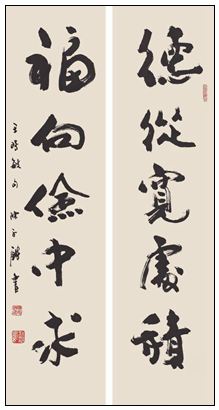 德從寬處積
福向儉中求
王時敏句 書